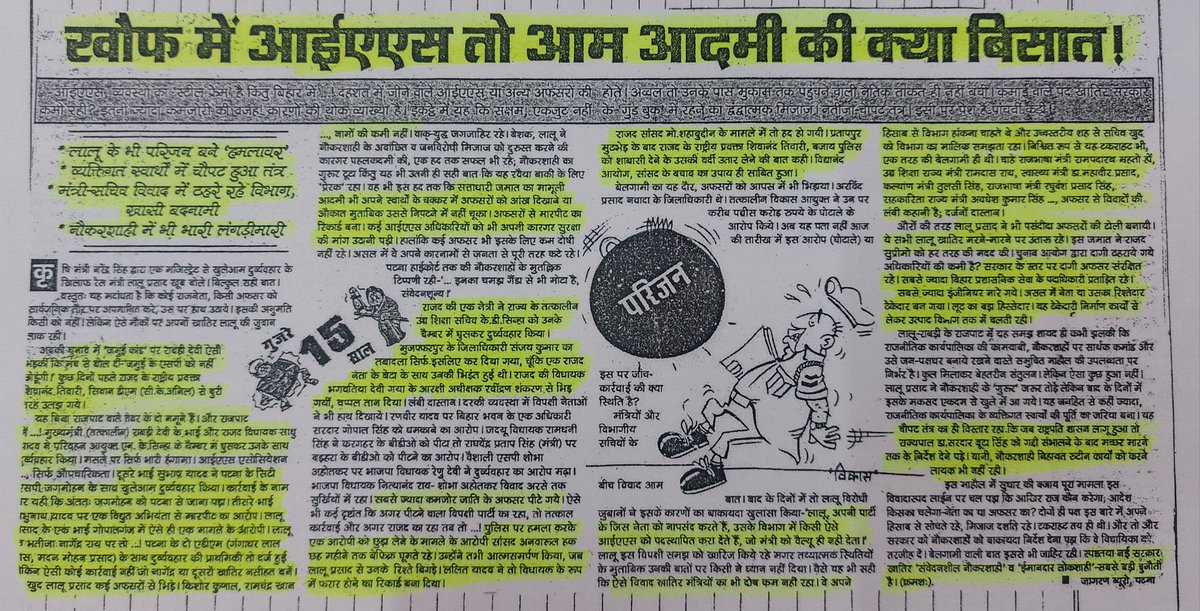 खौफ में आईएएस तो आम आदमी की क्या बिसात!
आईएएस, व्यवस्था का 'स्टील फ्रेम' है किंतु बिहार में ...! दहशत में जीने वाले आईएएस या अन्य अफसरों की होते। अव्वल तो उनके पास मुकाम तक पहुंचने वाली नैतिक ताकत ही नहीं बची। कमाई वाले पद खातिर सरकार
* लालू के भी परिजन बने 'हमलावर'
* व्यक्तिगत स्वार्थों में चौपट हुआ तंत्र
* मंत्री-सचिव विवाद में ठहरे रहे विभाग,
खासी बदनामी
* नौकरशाही में भी भारी लंगड़ीमारी
कृषि मंत्री नरेंद्र सिंह द्वारा एक मजिस्ट्रेट से खुलेआम दुर्व्यवहार के
खिलाफ रेल मंत्री लालू प्रसाद खूब बोले। बिल्कुल सही बात।
वस्तुतः यह मदांधता है कि कोई राजनेता, किसी अफसर को
सार्वजनिक तौर पर अपमानित करे, उस पर हाथ उठाये। इसकी अनुमति
किसी को नहीं। लेकिन ऐसे मौकों पर अपनों खातिर लालू की जुबान
अबकी चुनाव में 'जमुई कांड' पर राबड़ी देवी ऐसी
भड़कीं कि मंच से बोल दीं-'जमुई के एसपी को नहीं
छोडूंगी।' कुछ दिनों पहले राजद के राष्ट्रीय प्रवक्ता
शिवानंद तिवारी, सिवान डीएम (सी.के.अनिल) से बुरी
तरह उलझ गये।
यह बिना राजपाट वाले तेवर के दो नमूने हैं। और राजपाट
में ...! मुख्यमंत्री (तत्कालीन) राबड़ी देवी के भाई और राजद विधायक साधु
यादव ने परिवहन आयुक्त एन. के.सिन्हा के चैम्बर में घुसकर उनके साथ
दुर्व्यवहार किया। मसले पर सिर्फ भारी हंगामा। आईएएस एसोसियेशन
... सिर्फ औपचारिकता। दूसरे भाई सुभाष यादव ने पटना के सिटी
एसपी जगमोहन के साथ खुलेआम दुर्व्यवहार किया। कार्रवाई के नाम
पर यही कि अंततः जगमोहन को पटना से जाना पड़ा। तीसरे भाई
यादव पर एक विद्युत अभियंता से मारपीट का आरोप। लालू
प्रसाद के एक भाई गोपालगंज में ऐसे ही एक मामले के आरोपी। लालू
के भतीजा नागेंद्र राय पर तो ...! पटना के दो एडीएम (गंगाधर लाल
दास, मदन मोहन प्रसाद) के साथ दुर्व्यवहार की प्राथमिकी तो दर्ज हुई
लेकिन ऐसी कोई कार्रवाई नहीं जो नागेंद्र या दूसरों खातिर नसीहत बनें।
खुद लालू प्रसाद कई अफसरों से भिड़े। किशोर कुणाल, रामचंद्र खान
..., नामों की कमी नहीं। वाक्-युद्ध जगजाहिर रहे। बेशक, लालू ने
नौकरशाही के अवांछित व जनविरोधी मिजाज को दुरुस्त करने की
कारगर पहलकदमी की, एक हद तक सफल भी रहे; नौकरशाही का
गुरूर टूटा किंतु यह भी उतनी ही सही बात कि यह रवैया बाकी के लिए
'प्रेरक' रहा। यह भी इस हद तक कि सत्ताधारी जमात का मामूली
आदमी भी अपने स्वार्थों के चक्कर में अफसरों को आंख दिखाने या
औकात मुताबिक उससे निपटने में नहीं चूका। अफसरों से मारपीट का
रिकार्ड बना। कई आईएएस अधिकारियों को भी अपनी कारगर सुरक्षा
की मांग उठानी पड़ी। हालांकि कई अफसर भी इसके लिए कम दोषी
नहीं रहे। असल में वे अपने कारनामों से जनता से पूरी तरह कटे रहे।
पटना हाईकोर्ट तक की नौकरशाहों के मुतल्लिक
टिप्पणी रही-'... इनका चमड़ा गैंडा से भी मोटा है,
संवेदनशून्य।'
राजद की एक नेत्री ने राज्य के तत्कालीन
उच्च शिक्षा सचिव के.डी.सिन्हा को उनके
चैम्बर में घुसकर दुर्व्यवहार किया।
मुजफ्फरपुर के जिलाधिकारी संजय कुमार का
तबादला सिर्फ इसलिए कर दिया गया, चूंकि एक राजद
नेता के बेटा के साथ उनकी भिड़ंत हुई थी। राजद की विधायक
भगवतिया देवी गया के आरक्षी अधीक्षक रवींद्रण शंकरण से भिड़
गयीं, चप्पल तान दिया। लंबी दास्तान। दरकी व्यवस्था में विपक्षी नेताओं
ने भी हाथ दिखाये। रणवीर यादव पर बिहार भवन के एक अधिकारी
सरदार गोपाल सिंह को धमकाने का आरोप। जदयू विधायक रामधनी
सिंह ने करगहर के बीडीओ को पीटा तो राघवेंद्र प्रताप सिंह (मंत्री) पर
बड़हरा के बीडीओ को पीटने का आरोप। वैशाली एसपी शोभा
अहोतकर पर भाजपा विधायक रेणु देवी ने दुर्व्यवहार का आरोप मढ़ा।
भाजपा विधायक नित्यानंद राय- शोभा अहोतकर विवाद अरसे तक
सुर्खियों में रहा। सबसे ज्यादा कमजोर जाति के अफसर पीटे गये। ऐसे
भी कई दृष्टांत कि अगर पीटने वाला विपक्षी पार्टी का रहा, तो तत्काल
कार्रवाई और अगर राजद का रहा तब तो ...! पुलिस पर हमला करके
एक आरोपी को छुड़ा लेने के मामले के आरोपी सांसद अनवारूल हक
छह महीने तक बेफिक्र घूमते रहे। उन्होंने तभी आत्मसमर्पण किया, जब
लालू प्रसाद से उनके रिश्ते बिगड़े। ललित यादव ने तो विधायक के रूप
में फरार होने का रिकार्ड बना दिया।
गुजरे
15
साल
राजद सांसद मो.शहाबुद्दीन के मामले में तो हद हो गयी। प्रतापपुर
मुठभेड़ के बाद राजद के राष्ट्रीय प्रवक्ता शिवानंद तिवारी, बजाय पुलिस
को शाबासी देने के उसकी वर्दी उतार लेने की बात कही। विद्यानंद
आयोग, सांसद के बचाव का उपाय ही साबित हुआ।
बेलगामी का यह दौर, अफसरों को आपस में भी भिड़ाया। अरविंद
प्रसाद नवादा के जिलाधिकारी थे। तत्कालीन विकास आयुक्त ने उन पर
करीब पच्चीस करोड़ रुपये के घोटाले के
आरोप किये। अब यह पता नहीं आज
की तारीख में इस आरोप (घोटाले) या
परिजन
इस पर जांच-
कार्रवाई की क्या
स्थिति है?
मंत्रियों और
विभागीय
सचिवों के
बीच विवाद आम
विकास
बात। बाद के दिनों में तो लालू विरोधी
जुबानों ने इसके कारणों का बाकायदा खुलासा किया-'लालू, अपनी पार्टी
के जिस नेता को नापसंद करते हैं, उसके विभाग में किसी ऐसे
आईएएस को पदस्थापित करा देते हैं, जो मंत्री को वैल्यू ही नहीं देता।'
लालू इस विपक्षी समझ को खारिज किये रहे मगर तथ्यात्मक स्थितियों
के मुताबिक उनकी बातों पर किसी ने ध्यान नहीं दिया। वैसे यह भी सही
कि ऐसे विवाद खातिर मंत्रियों का भी दोष कम नहीं रहा। वे अपने
हिसाब से विभाग हांकना चाहते थे और उच्चस्तरीय शह से सचिव खुद
को विभाग का मालिक समझता रहा। निश्चित रूप से यह टकराहट भी,
एक तरह की बेलगामी ही थी। चाहे राजभाषा मंत्री रामपदारथ महतो हों,
उच्च शिक्षा राज्य मंत्री रामदास राय, स्वास्थ्य मंत्री डा.महावीर प्रसाद,
कल्याण मंत्री तुलसी सिंह, राजभाषा मंत्री रघुवंश प्रसाद सिंह,
सहकारिता राज्य मंत्री अवधेश कुमार सिंह ..., अफसर से विवादों की
लंबी कहानी है; दर्जनों दास्तान।
औरों की तरह लालू प्रसाद ने भी पसंदीदा अफसरों की टोली बनायी।
ये सभी लालू खातिर मरने-मारने पर उतारू रहे। इस जमात ने राजद
सुप्रीमो को हर तरह की मदद की। चुनाव आयोग द्वारा दागी ठहराये गये
अधिकारियों की कमी है? सरकार के स्तर पर दागी अफसर संरक्षित
रहे। सबसे ज्यादा बिहार प्रशासनिक सेवा के पदाधिकारी प्रताड़ित रहे।
सबसे ज्यादा इंजीनियर मारे गये। असल में नेता या उसका रिश्तेदार
ठेकेदार बन गया। लूट का बड़ा हिस्सेदार। यह ठेकेदारी निर्माण कार्यों से
लेकर उत्पाद विभाग तक में चलती रही।
लालू-राबड़ी के राजपाट में यह समझ शायद ही कभी झलकी कि
राजनीतिक कार्यपालिका की कामयाबी, नौकरशाहों पर सार्थक कमांड और
उसे जन-पक्षधर बनाये रखने वास्ते समुचित माहौल की उपलब्धता पर
निर्भर है। कुल मिलाकर बेहतरीन संतुलन। लेकिन ऐसा कुछ हुआ नहीं।
लालू प्रसाद ने नौकरशाही के 'गुरूर' जरूर तोड़े लेकिन बाद के दिनों में
इसके मकसद एकदम से खुले में आ गये। यह जनहित से कहीं ज्यादा,
राजनीतिक कार्यपालिका के व्यक्तिगत स्वार्थों की पूर्ति का जरिया बना। यह
चौपट तंत्र का ही विस्तार रहा.कि जब राष्ट्रपति शासन लागू हुआ तो
राज्यपाल डा.सरदार बूटा सिंह को गद्दी संभालने के बाद मच्छर मारने
तक के निर्देश देने पड़े। यानी, नौकरशाही बिहस्यत रुटीन कार्यों को करने
लायक भी नहीं रही।
इस माहौल में सुधार की बजाय पूरा मामला इस
विवादास्पद लाईन पर चल पड़ा कि आखिर राज कौन करेगा; आदेश
किसका चलेगा-नेता का या अफसर का? दोनों ही पक्ष इस बारे में अपने
हिसाब से सोचते रहे, मिजाज दर्शाते रहे। टकराहट तय ही थी। और तो और
सरकार को नौकरशाहों को बाकायदा निर्देश देना पड़ा कि वे विधायिका को
तरजीह दें। बेलगामी वाली बात इससे भी जाहिर रही। स्पष्टतया नई सरकार
खातिर 'संवेदनशील नौकरशाही' व 'ईमानदार लोकशाही'-सबसे बड़ी चुनौती
है। (क्रमशः).
■ जागरण ब्यूरो, पटना